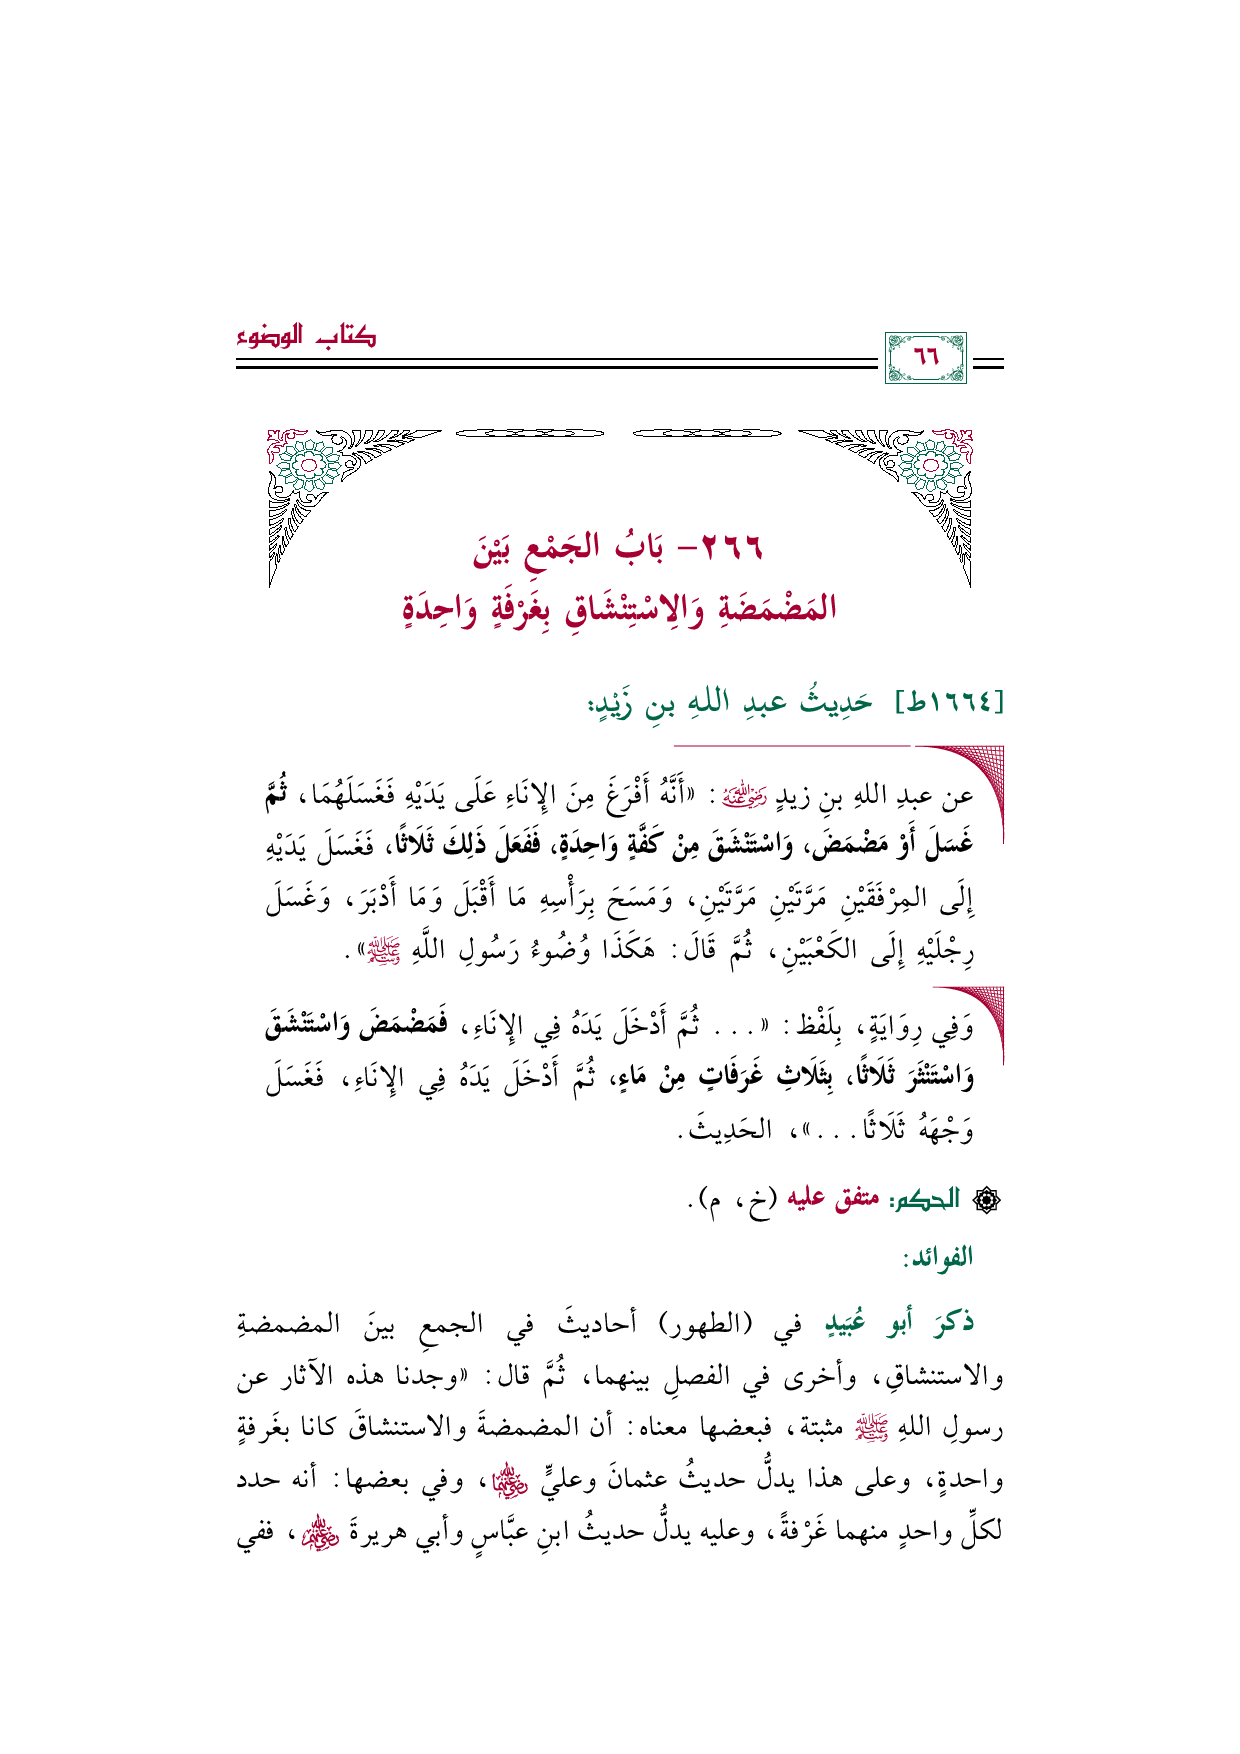 كتاب الوضوء
٦٦
٢٦٦- بَابُ الجَمْعِ بَيْنَ
المَضْمَضَةِ وَالِاسْتِنْشَاقِ بِغَرْفَةٍ وَاحِدَةٍ
[١٦٦٤ط] حَدِيثُ عبدِ اللهِ بنِ زَيْدٍ:
عن عبدِ اللهِ بنِ زيدٍ رضي الله عنه: «أَنَّهُ أَفْرَغَ مِنَ الإِنَاءِ عَلَى يَدَيْهِ فَغَسَلَهُمَا، ثُمَّ
غَسَلَ أَوْ مَضْمَضَ، وَاسْتَنْشَقَ مِنْ كَفَّةٍ وَاحِدَةٍ، فَفَعَلَ ذَلِكَ ثَلَاثًا، فَغَسَلَ يَدَيْهِ
إِلَى المِرْفَقَيْنِ مَرَّتَيْنِ مَرَّتَيْنِ، وَمَسَحَ بِرَأْسِهِ مَا أَقْبَلَ وَمَا أَدْبَرَ، وَغَسَلَ
رِجْلَيْهِ إِلَى الكَعْبَيْنِ، ثُمَّ قَالَ: هَكَذَا وُضُوءُ رَسُولِ اللَّهِ ﷺ».
وَفِي رِوَايَةٍ، بِلَفْظ: «... ثُمَّ أَدْخَلَ يَدَهُ فِي الإِنَاءِ، فَمَضْمَضَ وَاسْتَنْشَقَ
وَاسْتَنْثَرَ ثَلَاثًا، بِثَلَاثِ غَرَفَاتٍ مِنْ مَاءٍ، ثُمَّ أَدْخَلَ يَدَهُ فِي الإِنَاءِ، فَغَسَلَ
وَجْهَهُ ثَلَاثًا...»، الحَدِيثَ.
الحكم: متفق عليه (خ، م).
الفوائد:
ذكرَ أبو عُبَيدٍ في (الطهور) أحاديثَ في الجمعِ بينَ المضمضةِ
والاستنشاقِ، وأخرى في الفصلِ بينهما، ثُمَّ قال: «وجدنا هذه الآثار عن
رسولِ اللهِ ﷺ مثبتة، فبعضها معناه: أن المضمضةَ والاستنشاقَ كانا بغَرفةٍ
واحدةٍ، وعلى هذا يدلُّ حديثُ عثمانَ وعليٍّ رضي الله عنهما، وفي بعضها: أنه حدد
لكلِّ واحدٍ منهما غَرْفةً، وعليه يدلُّ حديثُ ابنِ عبَّاسٍ وأبي هريرةَ رضي الله عنهم، ففي